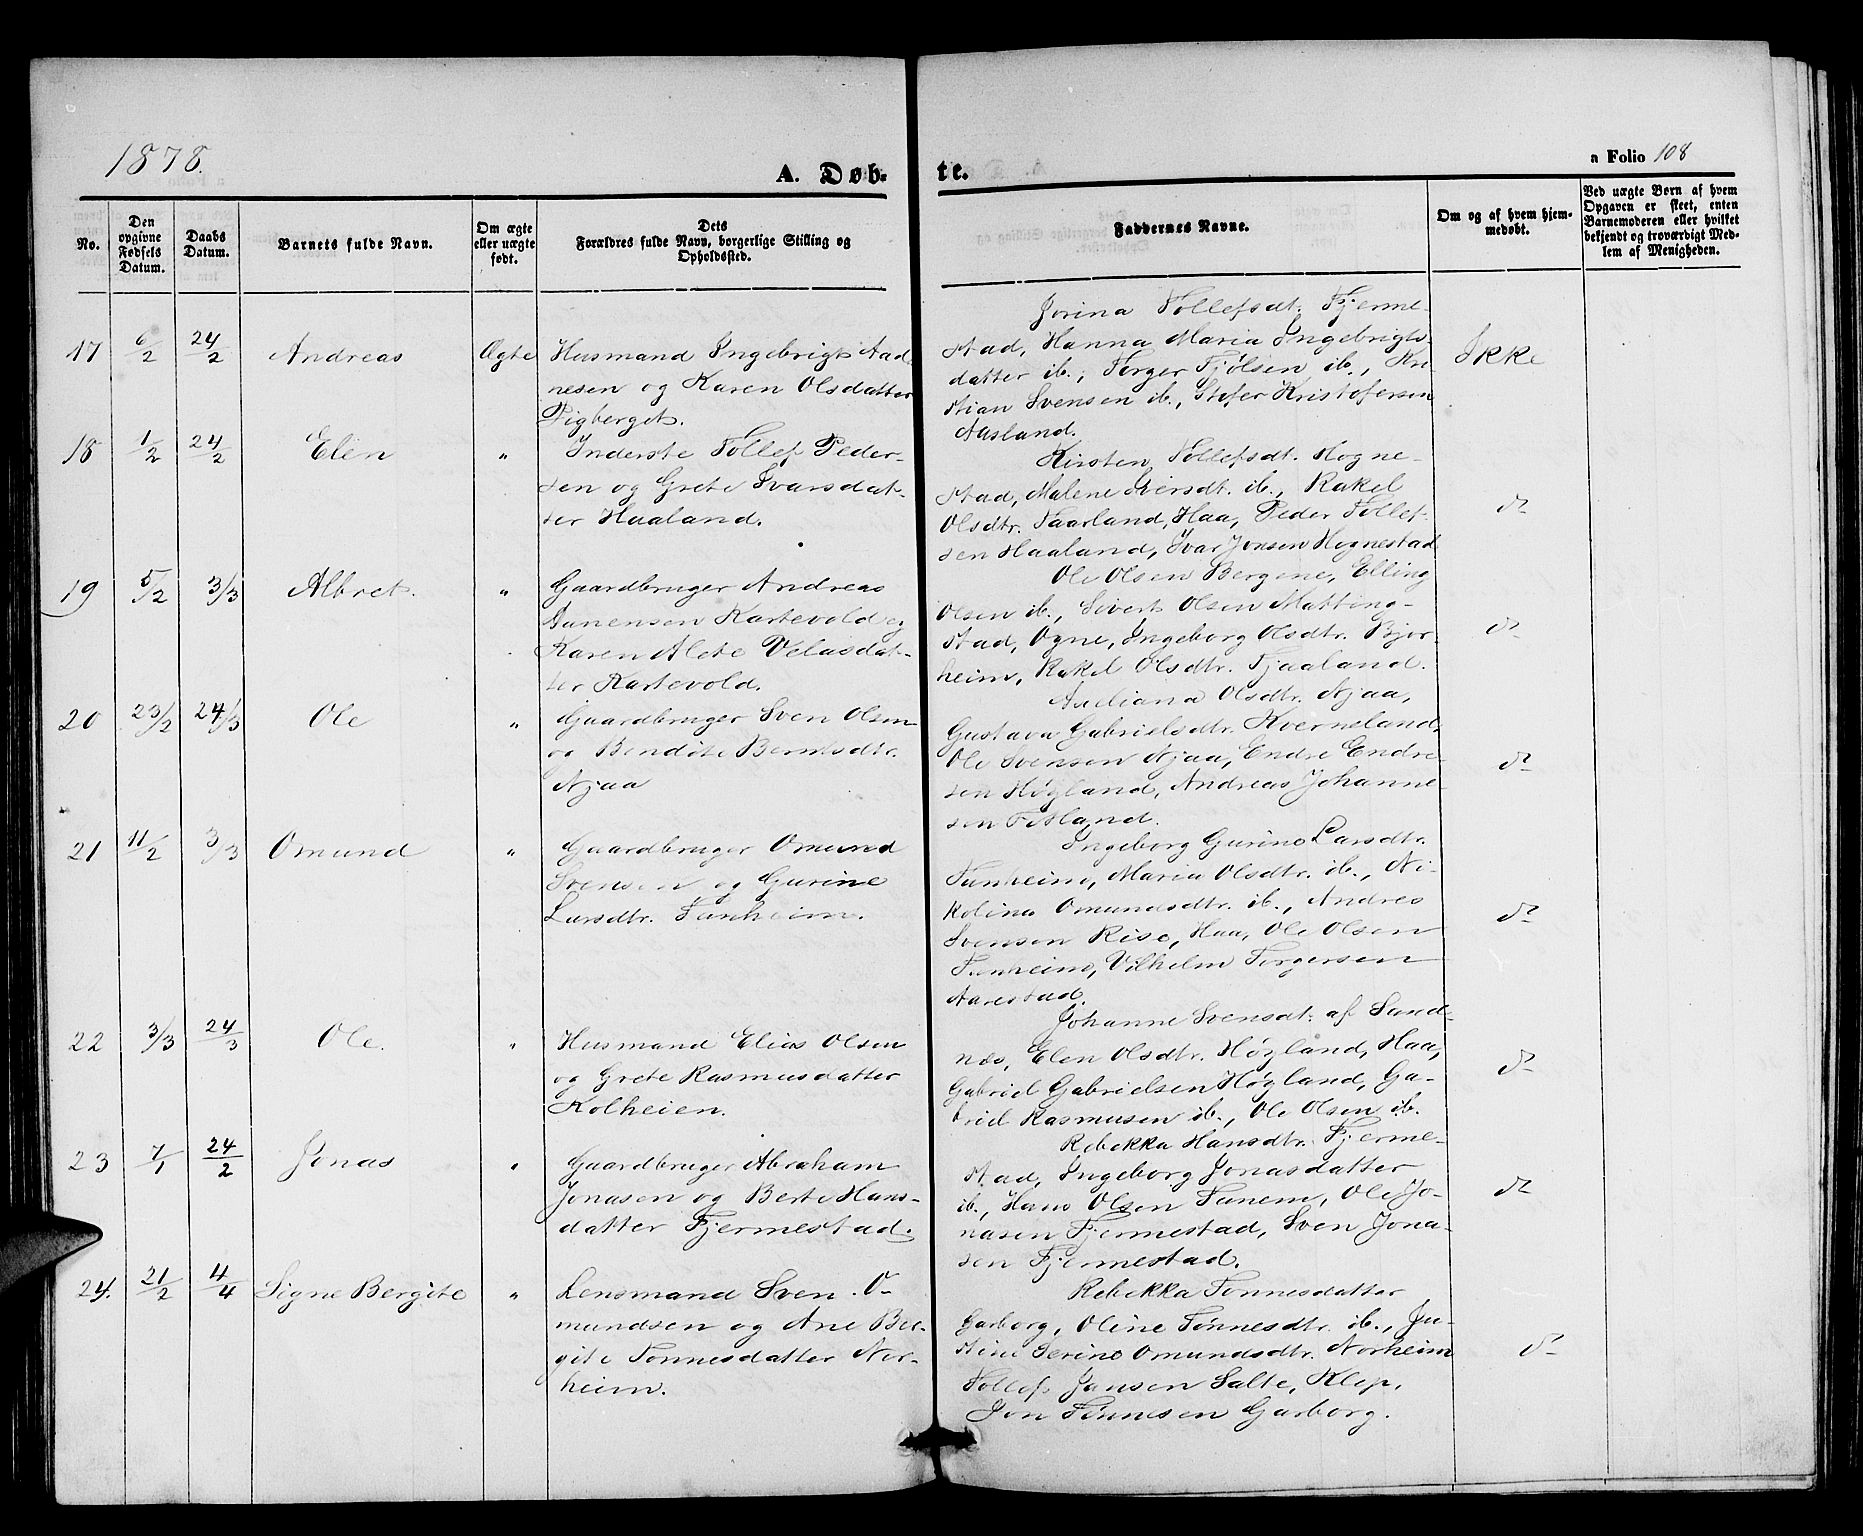 1878.
A. Døb-
te.
a Folio 108
No.
Den
opgivne
Fødsels
Datum.
Daabs
Datum.
Barnets fulde Navn.
Om ægte
eller uægte
født.
Dets
Forældres fulde Navn, borgerlige Stilling og
Opholdssted.
Faddernes Navne.
Om og af hvem hjem-
medøbt.
Ved uægte Børn af hvem
Opgaven er skeet, enten
Barnemoderen eller hvilket
bekjendt og troværdigt Med-
lem af Menigheden.
17 6/2 24/2 Andreas Ægte
Husmand Ingebrigt Aad-
nesen og Karen Olsdatter
Tigberget.
Jorina Tollefsdt. Fjerme-
stad, Hanna Maria Ingebrigts-
datter ib., Torger Fjølsen ib., Kri
stian Svensen ib., Stofer Kristofersen
Aasland.
Ikke
18 1/2 24/2 Elen "
Inderste Tollef Peder-
sen og Grete Ivarsdat-
ter Haaland.
Kirsten Tollefsdt. Hogne-
stad, Malene Iversdt. ib., Rakel
Olsdtr. Taarland, Haa, Peder Tollef-
sen Haaland, Ivar Jonsen Hognestad
do
19 5/2 3/3 Albret. "
Gaardbruger Andreas
Danensen Kartevold og
Karen Alete Velasdat-
ter Kartevold.
Ole Olsen Bergene, Elling
Olsen ib., Sivert Olsen Matting-
stad, Ogne, Ingeborg Olsdtr. Bjor-
heim, Rakel Olsdtr. Fjaaland.
do
20 23/2 24/3 Ole "
Gaardbruger Sven Olsen
og Bendite Berntsdtr.
Njaa
Auliana Olsdtr. Njaa,
Gustava Gabrielsdtr. Kverneland,
Ole Svensen Njaa, Endre Endre-
sen Høyland, Andreas Johanne-
sen Fitland.
do
21 11/2 3/3 Omund "
Gaardbruger Omund
Svensen og Gurine
Larsdtr. Tunheim.
Ingeborg Gurine Larsdtr.
Tunheim, Maria Olsdtr. ib., Ni-
koline Omundsdtr. ib., Andres
Svensen Rise, Haa, Ole Olsen
Tunheim, Vilhelm Torgersen
Aarestad.
do
22 3/3 24/3 Ole. "
Husmand Elias Olsen
og Grete Rasmusdatter
Kolheien.
Johanne Svensdt. af Sand-
næs, Elen Olsdtr. Høyland, Haa,
Gabriel Gabrielsen Høyland, Ga-
briel Rasmusen ib., Ole Olsen ib.
do
23 7/1 24/2 Jonas "
Gaardbruger Abraham
Jonasen og Berte Hans-
datter Fjermestad.
Rebekka Hansdtr. Fjerme-
stad, Ingeborg Jonasdatter
ib., Hans Olsen Tunem, Ole Jo-
nasen Fjermestad, Sven Jona-
sen Fjermestad.
do
24. 21/2 4/4 Signe Bergite "
Lensmand Sven O-
mundsen og Ane Ber-
gite Tønnesdatter Nor-
heim.
Rebekka Tonnesdatter
Garborg, Oline Tønnesdtr. ib., Ju-
stine Serine Omundsdtr. Norheim
Tollef Jansen Salte, Klep,
Jon Tønnesen Garborg.
do